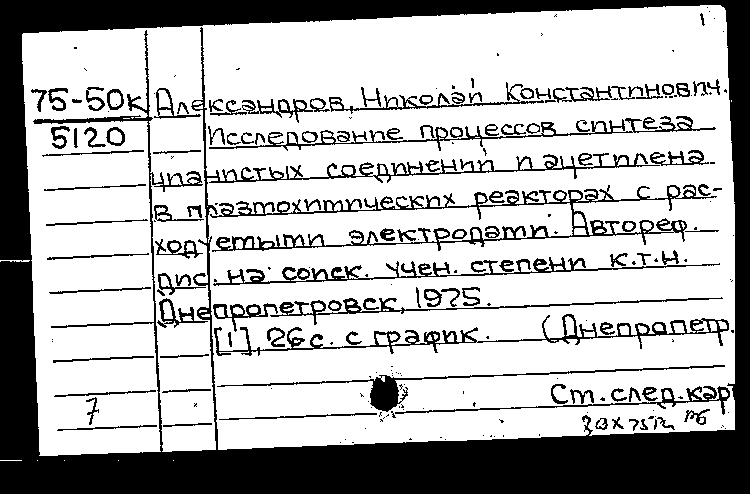 1
75-50к Александров, Николай Константинович.
5120 Исследование процессов синтеза
цианистых соединений и ацетилена
в плазмохимических реакторах с рас-
ходуемыми электродами. Автореф.
дис. на соиск. учен. степени к.т.н.
Днепропетровск, 1975.
[1], 26 с. с график. (Днепропетр.
Ст. след. кар
7